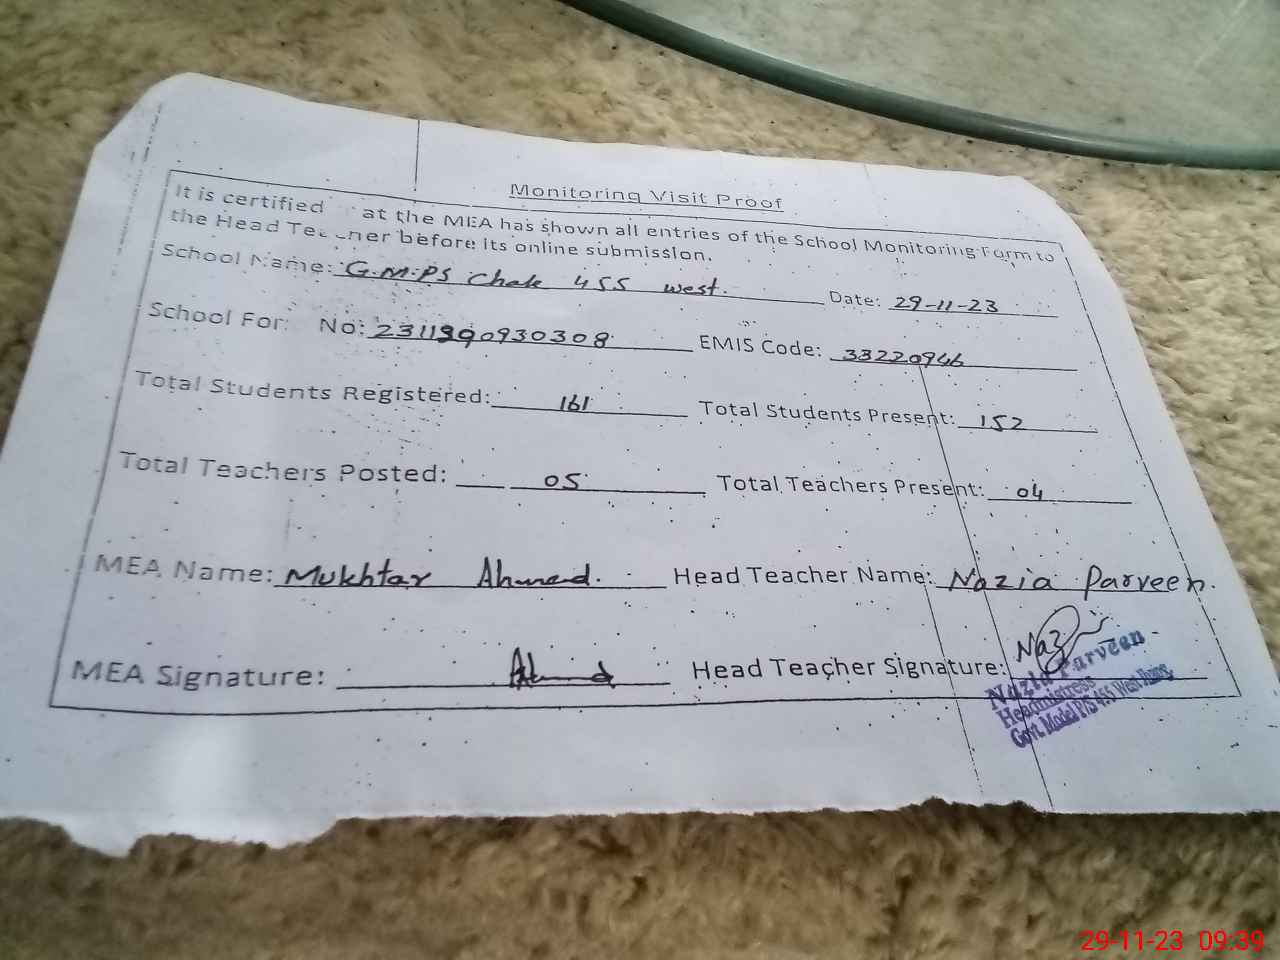 Monitoring Visit Proof
It is certified at the MEA has shown all entries of the School Monitoring Form to
the Head Teacher before its online submission.
School Name: G.M.PS Chak 455 west. Date: 29-11-23
School For No: 2311290930308 EMIS Code: 33220946
Total Students Registered: 161 Total Students Present: 152
Total Teachers Posted: 05 Total Teachers Present: 04
MEA Name: Mukhtar Ahmed. Head Teacher Name: Nazia Parveen.
MEA Signature: Ahmed Head Teacher Signature: Naz
Nazia Parveen
Headmistress
Govt. Model P/S 455 West Jhang
29-11-23 09:39